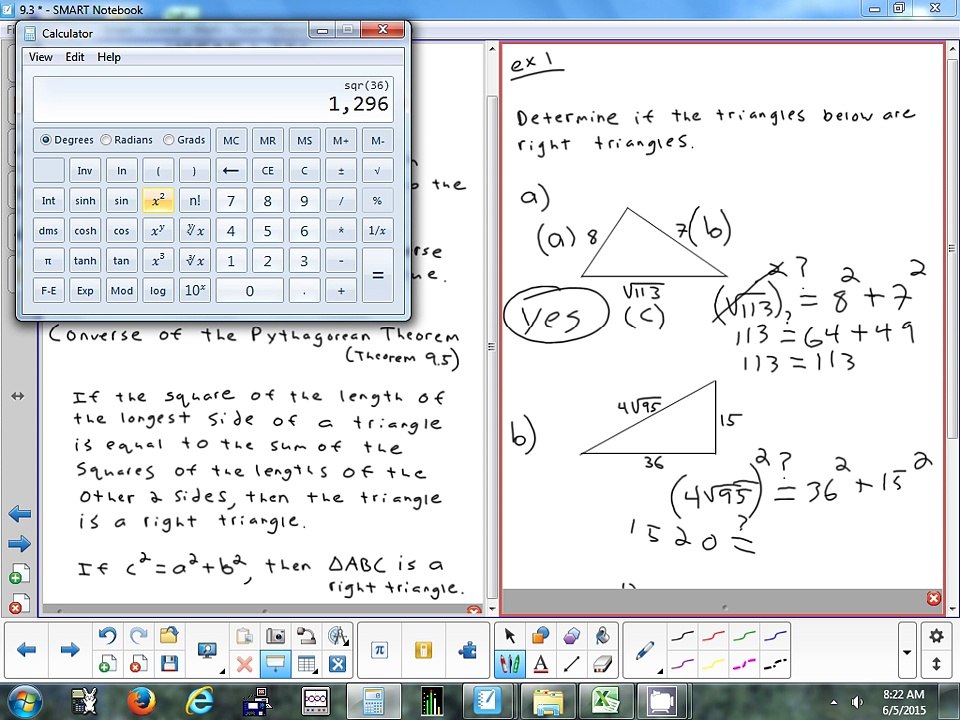 9.3 * - SMART Notebook
Calculator
View Edit Help
sqr(36)
1,296
Degrees Radians Grads MC MR MS M+ M-
Inv ln ( ) ← CE C ± √
Int sinh sin x² n! 7 8 9 / %
dms cosh cos xʸ ʸ√x 4 5 6 * 1/x
π tanh tan x³ ³√x 1 2 3 - =
F-E Exp Mod log 10ˣ 0 . +
the
Converse of the Pythagorean Theorem
(Theorem 9.5)
If the square of the length of
the longest side of a triangle
is equal to the sum of the
squares of the lengths of the
other 2 sides, then the triangle
is a right triangle.
If c² = a² + b², then △ABC is a
right triangle.
ex 1
Determine if the triangles below are
right triangles.
a)
(a) 8 7 (b)
√113
(c)
yes
(√113)² ?= 8² + 7²
113 ?= 64 + 49
113 = 113
b)
4√95
15
36
(4√95)² ?= 36² + 15²
1520 ?=
π
A
8:22 AM
6/5/2015